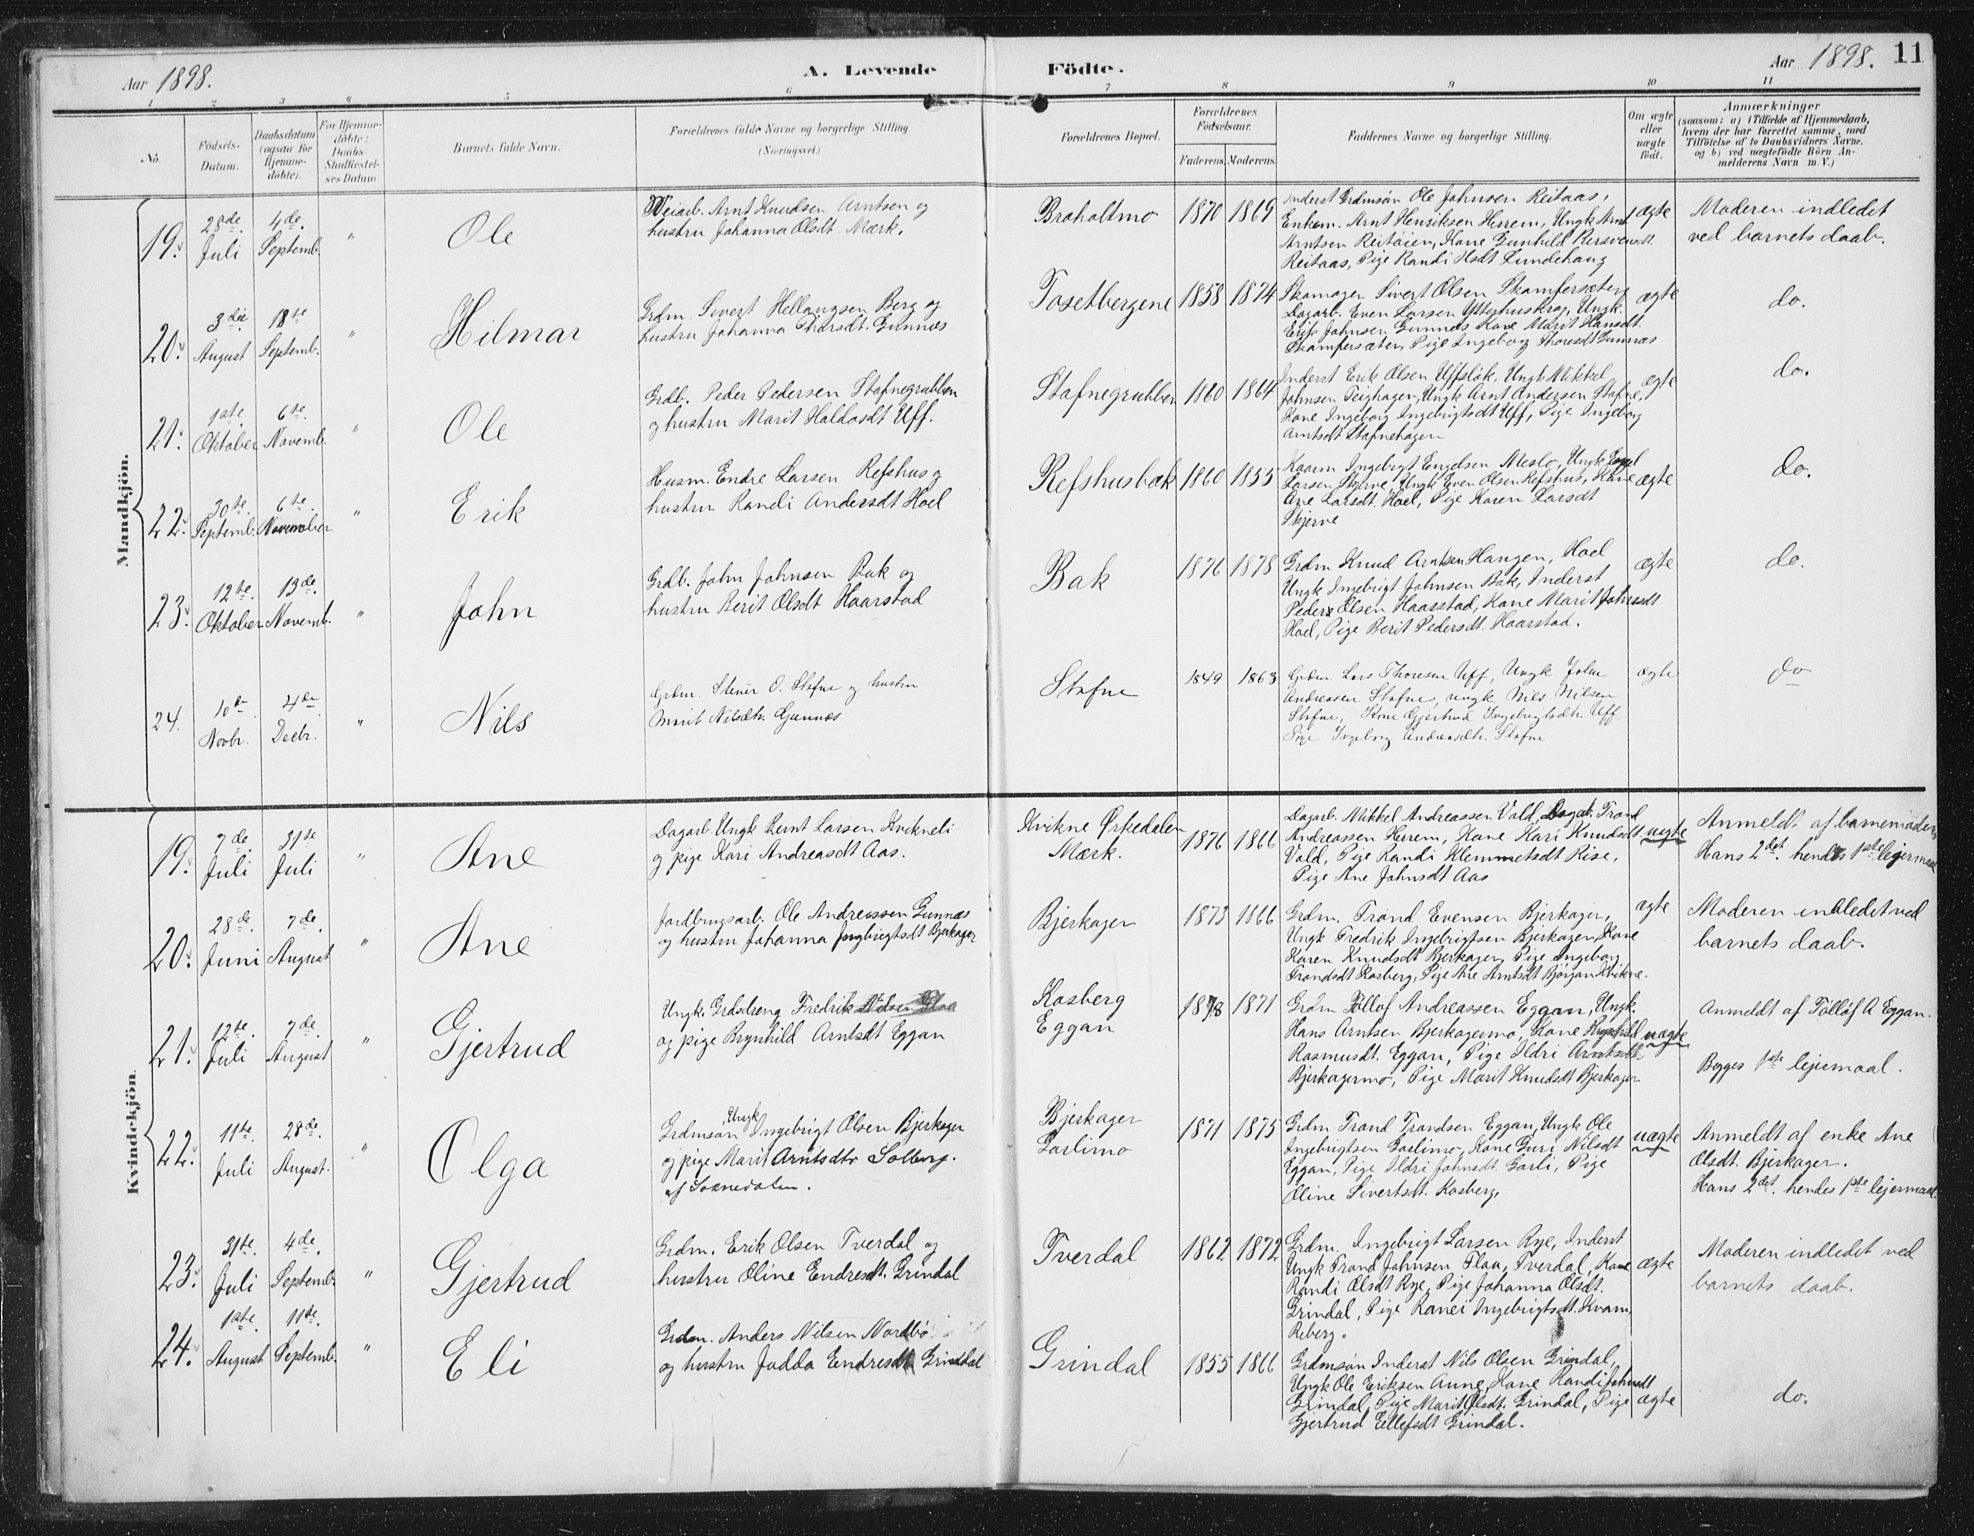 Aar 1898.
A. Levende Födte.
Aar 1898. 11
1 2 3 4 5 6 7 8 9 10 11
No.
Födsels-Datum.
Daabsdatum (ogsaa for Hjemme-döbte).
For Hjemme-döbte: Daabs-Stadfæstel-ses Datum.
Barnets fulde Navn.
Forældrenes fulde Navne og borgerlige Stilling (Næringsvei.)
Forældrenes Bopæl.
Forældrenes Födselsaar.
Faderens. Moderens.
Faddernes Navne og borgerlige Stilling.
Om ægte eller uægte født.
Anmærkninger
(saasom: a) i Tilfælde af Hjemmedaab,
hvem der har forrettet samme, med
Tilföielse af to Daabsvidners Navne.
og b) ved uægtefödte Börn An-
melderens Navn m. V.)
Mandkjön.
19. 28de Juli 4de Septemb. " Ole
Veiarb. Arnt Knudsen Arntsen og
hustru Johanna Olsdt. Mærk.
Braholtmo 1870 1869
Inderst Grdmsøn Ole Johnsen Reitaas,
Enkem. Arnt Henriksen Herrem, Ungk Arnt
Arntsen Reitøien, Kone Gunhild
Reitaas, Pige Randi Lundehaug
ægte
Moderen indledet
ved barnets daab.
20. 3die August 18te Septemb. " Hilmar
Grdm. Sivert Hellaugsen Berg og
hustru Johanna Thoresdt. Gunnæs
Tosetbergene 1858 1874
Skomager Sivert Olsen Skamfersæter,
Dagarb. Even Larsen Ytterhuskrog, Ungk.
Erik Johnsen Gunnæs Kone Marit Hansdt.
Skamfersæter, Pige Ingeborg Thoresdt Gunnæs
ægte
do.
21. 1ste Oktober 6te Novemb. " Ole
Grdb. Peder Pedersen Stafnegrubben
og hustru Marit Haldosdt Uff.
Stafnegrubben 1860 1864
Inderst Erik Olsen Uffsløk, Ungk Mikkel
Johnsen Teighagen, Ungk Arnt Andersen Stafne,
Kone Ingeborg Ingebrigtsdt Uff, Pige Ingeborg
Arntsdt Stafnehagen
ægte
do.
22. 30te Septemb. 6te November " Erik
Husm. Endre Larsen Refshus og
hustru Randi Andersdt Hoel
Refshusbak 1860 1855
Kaarm Ingebrigt Engelsen Meslo, Ungk
Larsen Skjerve, Ungk Even Olsen Refshus, Kone
Ane Larsdt. Hoel, Pige Karen Larsdt
Skjerve
ægte
do.
23. 12te Oktober 13de Novemb. " John
Grdb. John Johnsen Bak og
hustru Berit Olsdt Haarstad
Bak 1876 1878
Grdm Knud Arntsen Haugen, Hoel
Ungk Ingebrigt Johnsen Bak, Inderst
Peder Olsen Haarstad, Kone Marit Johnsdt
Hoel, Pige Berit Pedersdt. Haarstad.
ægte
do.
24. 10de Novbr. 4de Decbr. " Nils
Grdm. Stener O. Stafne og hustru
Marit Nilsdtr. Gunnæs
Stafne 1849 1863
Grdm Lars Thoresen Uff, Ungk John
Andreassen Stafne, ungk Nils Nilsen
Stafne, Kone Gjertrud Ingebrigtsdtr. Uff.
Pige Ingeborg Andreasdtr. Stafne
ægte
do
Kvindekjön.
19. 7de Juli 31te Juli " Ane
Dagarb. Ungk Bernt Larsen Kvikneli
og pige Kari Andreasdt Aas.
Kvikne Ørkedalen
Mærk. 1876 1866
Dagarb. Mikkel Andreassen Vold, Dagarb. Trond
Andreassen Herrem, Kone Kari Knudsdt
Vold, Pige Randi Klemmetsdt Rise,
Pige Ane Johnsdt Aas
uægte
Anmeldt af barnemoderen,
Hans 2det. hendes 1ste lejermaal
20. 28de Juni 7de August " Ane
Jordbrugsarb. Ole Andreassen Gunnæs
og hustru Johanna Ingbrigtsdt Bjerkager
Bjerkager 1873 1866
Grdm. Trond Evensen Bjerkager,
Ungk Fredrik Ingebrigtsen Bjerkager, Kone
Karen Knudsdt Bjerkager, Pige Ingeborg
Trondsdt Kosberg, Pige Ane Arntsdt Bjørgan Kvikne.
ægte
Moderen indledet ved
barnets daab.
21. 12te Juli 7de August " Gjertrud
Ungk. Grdsdreng Fredrik Nilsen Floa
og pige Brynhild Arntsdt Eggan
Kosberg
Eggan 1878 1871
Grdm Tollof Andreassen Eggan, Ungk.
Hans Arntsen Bjerkagermo, Kone
Rasmusdt. Eggan, Pige Ildri Arntsdt
Bjerkagermo, Pige Marit Knudsdt Bjerkager
uægte
Anmeldt af Tollof A Eggan.
Begges 1ste lejermaal.
22. 11te Juli 28de August. " Olga
Grdmsøn Ungk Ingebrigt Olsen Bjerkager
og pige Marit Arntsdtr Solberg.
af Soknedalen.
Bjerkager
Garlimo 1871 1875
Grdm Trond Trondsen Eggan, Ungk Ole
Ingebrigtsen Garlimo, Kone Guri Nilsdt
Eggan, Pige Ildri Johnsdt. Garli, Pige
Oline Sivertsdt. Kosberg,
uægte
Anmeldt af enke Ane
Olsdt. Bjerkager.
Hans 2det. hendes 1ste lejermaal.
23. 31te Juli 4de Septemb. " Gjertrud
Grdm. Erik Olsen Tverdal og
hustru Oline Endresdt. Grindal
Tverdal 1862 1872
Grdm. Ingebrigt Larsen Rye, Inderst
Ungk Trond Johnsen Floa, Tverdal, Kone
Randi Olsdt Rye, Pige Johanna Olsdt.
Grindal, Pige Ranei Ingebrigtsdt. Kvam,
Reberg.
ægte
Moderen indledet ved
barnets daab.
24. 1ste August 11te Septemb. " Eli
Grdm. Anders Nilsen Nordbø
og hustru Jadda Endresdt Grindal
Grindal 1855 1866
Grdmsøn Inderst Nils Olsen Grindal,
Ungk Ole Eriksen Aune, Kone Randi Johnsdt
Grindal, Pige Marit Olsdt. Grindal, Pige
Gjertrud Ellefsdt Grindal.
ægte
do.